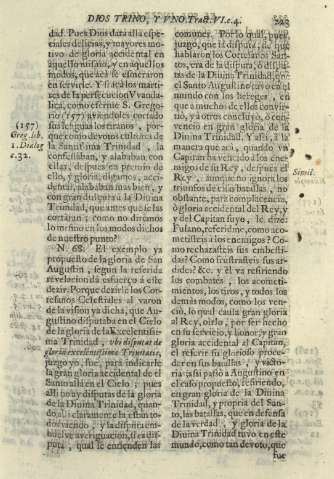 DIOS TRINO, Y VNO. Tract. VI. c. 4.
dad. Pues Dios dará allà espe-
ciales delicias, y mayores moti-
vo de gloria accidental en
aquellos mismos, y en aquellos
modos, que acà se esmeraron
en servirle. Y si acà los marti-
res de la persecucion Vvanda-
lica, como escrive S. Grego-
rio (157) aviendoles cortado
sus lenguas los tiranos, por-
que como devotos cultores de
la Santissima Trinidad, la
confessaban, y alababan con
ellas, despues en premio de
ello, y gloria, despues, acci-
dental, alababan mas bien, y
con gran dulçura à la Divina
Trinidad, que antes que se las
cortaran; como no diremos
lo mismo en los modos dichos
de nuestro punto?
(157)
Greg. lib.
1. Dialog.
c. 32.
N. 68. El exemplo ya
propuesto de la gloria de San
Augustin, segun la referida
revelacion da esfuerço à este
dezir. Porque dezirle los Cor-
tesanos Celestiales al varon
de la vision ya dicha, que Au-
gustino disputaba en el Cielo
de la gloria de la Excelentissi-
ma Trinidad, ubi disputat de
gloria excellentissimæ Trinitatis,
juzgo yo, fue, para indicarle
la gran gloria accidental de el
Santo allà en el Cielo; pues
alli no ay disputas de la gloria
de la Divina Trinidad, quan-
do alli claramente la estan to-
dos viendo, y la disputa em-
buelve averiguacion, si ea dis-
puta, qual le entienden las
comunes. Por lo qual, pues,
juzgo, que la disputa, de que
hablaron los Cortesanos San-
tos, era de la disputa, ò dispu-
tas de la Divina Trinidad, que
el Santo Augustino tuvo en el
mundo con los Hereges, en
que à muchos de ello convir-
tiò, y à otros concluyò, ò con-
venciò en gran gloria de la
Divina Trinidad. Y assi, à la
manera que acà, quando vn
Capitan ha vencido à los ene-
migos de su Rey, despues el
Rey, aunque no ignora los
triunfos de ellas batallas, no
obstante, para complacencia,
ò gloria accidental del Rey, y
y del Capitan suyo, le dize:
Fulano, referidme, como aco-
metisteis à los enemigos? Co-
mo rechazasteis sus embesti-
das? Como frustrasteis sus ar-
dides? &c. y èl va refiriendo
los combates, los acometi-
mientos, los tiros, y todos los
demàs modos, como los ven-
ciò, lo qual causa gran gloria
al Rey, oirlo, por ser hecho
en su servicio, y honor: y gran
gloria accidental al Capitan,
el referir su glorioso proce-
der en sus batallas, y victo-
ria: assi passò à Augustino en
el caso propuesto, refiriendo,
en gran gloria de la Divina
Trinidad, y propria del San-
to, las batallas, que en defensa
de la verdad, y gloria de la
Divina Trinidad tuvo en este
mundo, como tan devoto, que
Simil.
fue